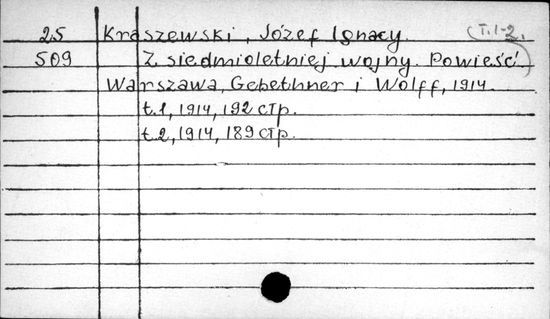 25 Kraszewski, Józef Ignacy. (T. 1-2.)
509 Z siedmioletniej wojny. Powieść.
Warszawa, Gebethner i Wolff, 1914.
t. 1, 1914, 192 стр.
t. 2, 1914, 189 стр.